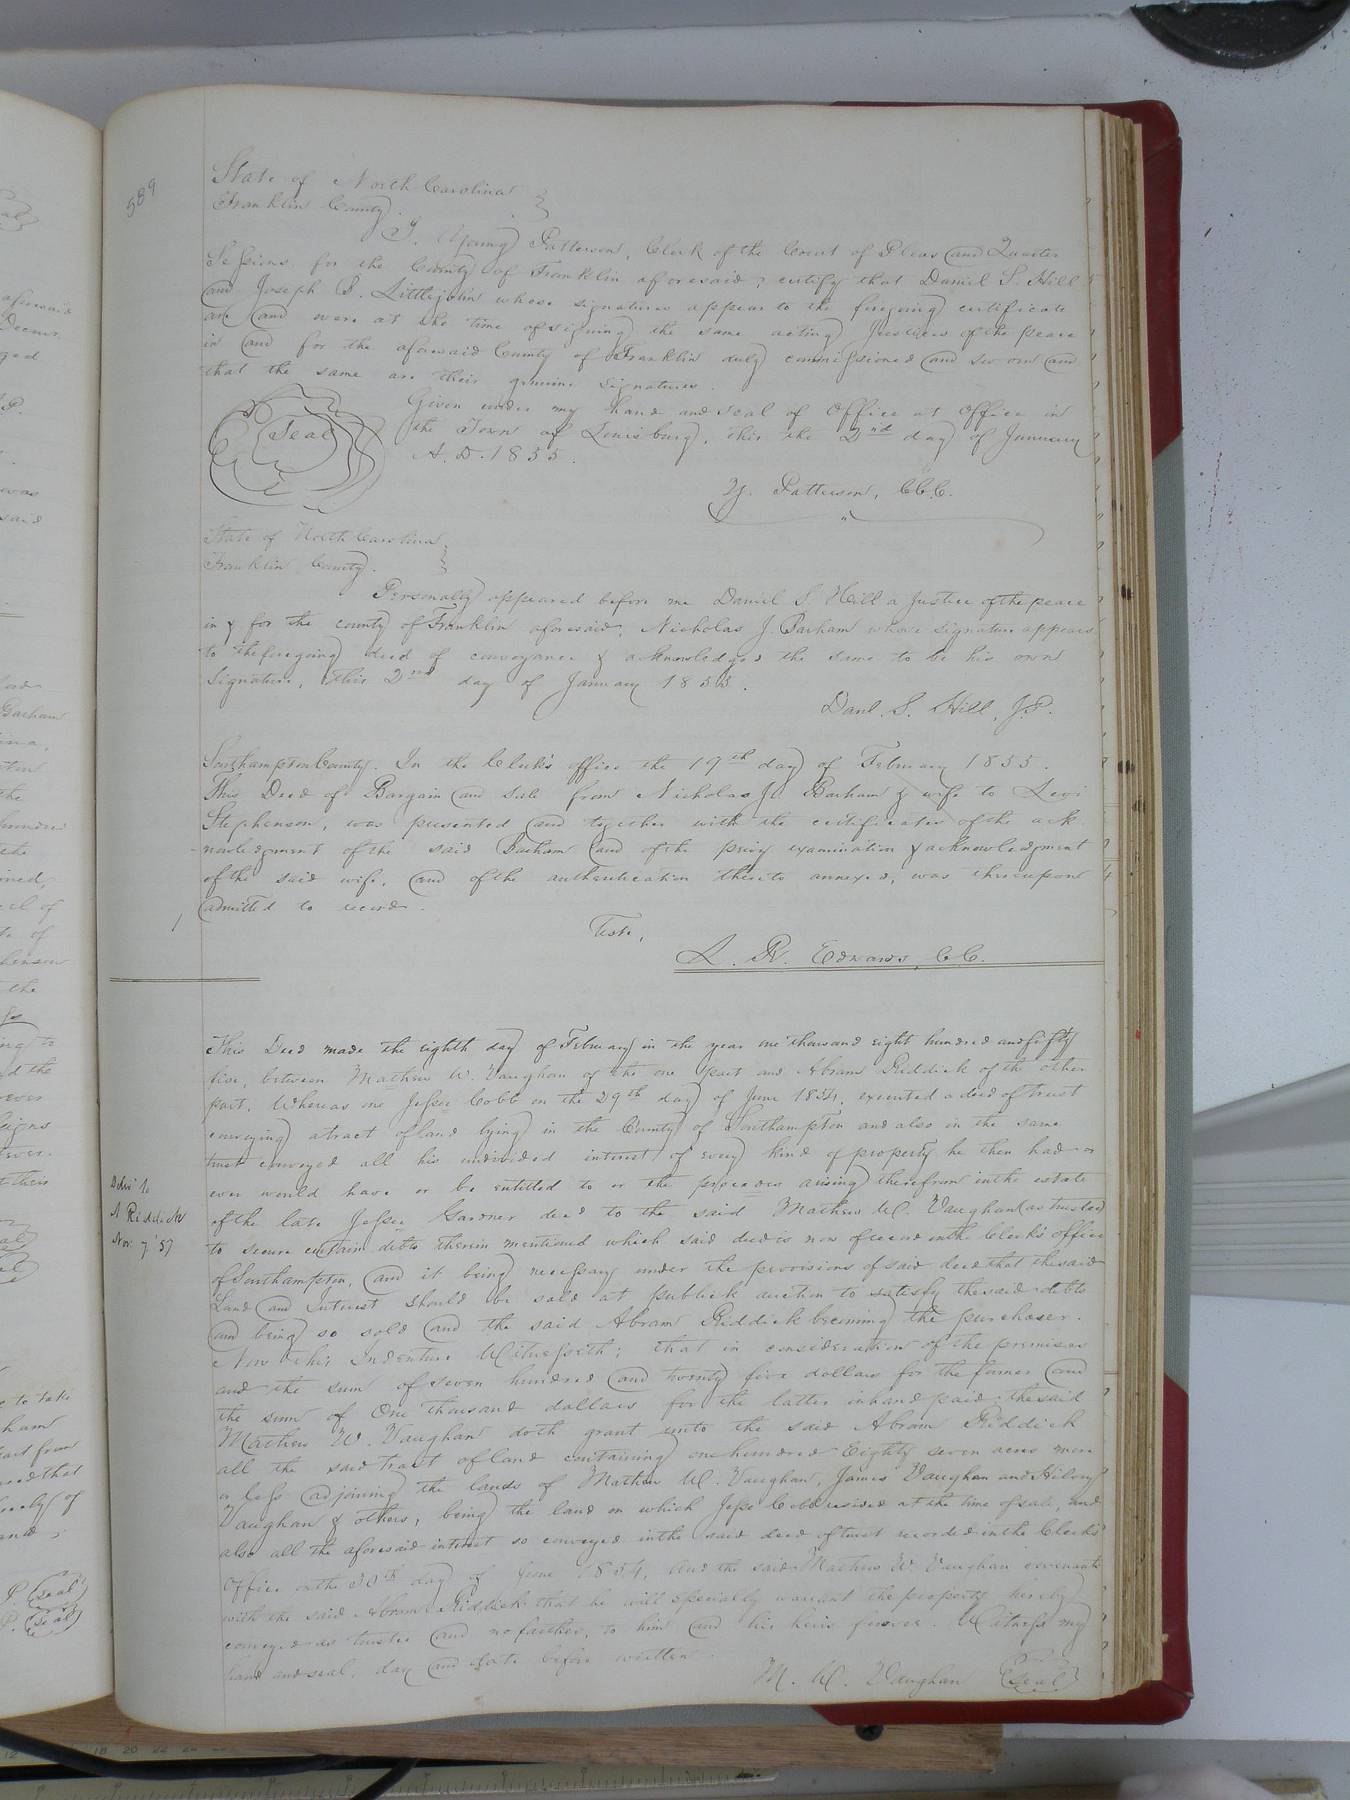 589
State of North Carolina
Franklin County.
I, Young Patterson, Clerk of the Court of Pleas and Quarter
Sessions for the County of Franklin aforesaid, certify that Daniel S. Hill
and Joseph B. Littlejohn whose signatures appear to the foregoing certificate
are and were at the time of signing the same acting Justices of the peace
in and for the aforesaid County of Franklin duly commissioned and sworn and
that the same are their genuine signatures.
Seal
Given under my hand and seal of Office at Office in
the Town of Louisburg, this the 2nd day of January
A. D. 1855.
Y. Patterson, C.C.C.
State of North Carolina
Franklin County.
Personally appeared before me Daniel S. Hill a Justice of the peace
in & for the county of Franklin aforesaid, Nicholas J. Barham whose signature appears
to the foregoing deed of conveyance & acknowledged the same to be his own
signature, this 2nd day of January 1855.
Danl. S. Hill, J.P.
Southampton County. In the Clerk's office the 19th day of February 1855.
This Deed of Bargain and Sale from Nicholas J. Barham & wife to Levi
Stephenson, was presented and together with the certificates of the ack
nowledgment of the said Barham and of the privy examination & acknowledgment
of the said wife, and of the authentication thereto annexed, was thereupon
admitted to record.
Teste,
L. R. Edwards, C.C.
This Deed made the eighth day of February in the year one thousand eight hundred and fifty
five, between Mathew W. Vaughan of the one part and Abram Riddick of the other
part, Whereas one Jesse Cobb on the 29th day of June 1854, executed a deed of trust
conveying a tract of land lying in the County of Southampton and also in the same
trust conveyed all his undivided interest of every kind of property he then had or
ever would have or be entitled to or the proceeds arising therefrom in the estate
Deliv'd to
A Riddick
Nov. 7 '57
of the late Jesse Gardner decd to the said Mathew W. Vaughan (as trustee)
to secure certain debts therein mentioned which said deed is now of record in the Clerk's office
of Southampton, and it being necessary under the provisions of said deed that the said
Land and Interest should be sold at publick auction to satisfy the said debts
and being so sold and the said Abram Riddick becoming the purchaser.
Now this Indenture Witnesseth; that in consideration of the premises
and the sum of seven hundred and twenty five dollars for the former and
the sum of One thousand dollars for the latter in hand paid, the said
Mathew W. Vaughan doth grant unto the said Abram Riddick
all the said tract of land containing one hundred Eighty seven acres more
or less adjoining the lands of Mathew W. Vaughan, James Vaughan and Hilory
Vaughan & others, being the land on which Jesse Cobb resided at the time of sale, and
also all the aforesaid interest so conveyed in the said deed of trust recorded in the Clerk's
Office on the 30th day of June 1854. And the said Mathew W. Vaughan covenants
with the said Abram Riddick that he will specially warrant the property hereby
conveyed as trustee and no farther, to him and his heirs forever. Witness my
hand and seal, day and date before written.
M. W. Vaughan Seal